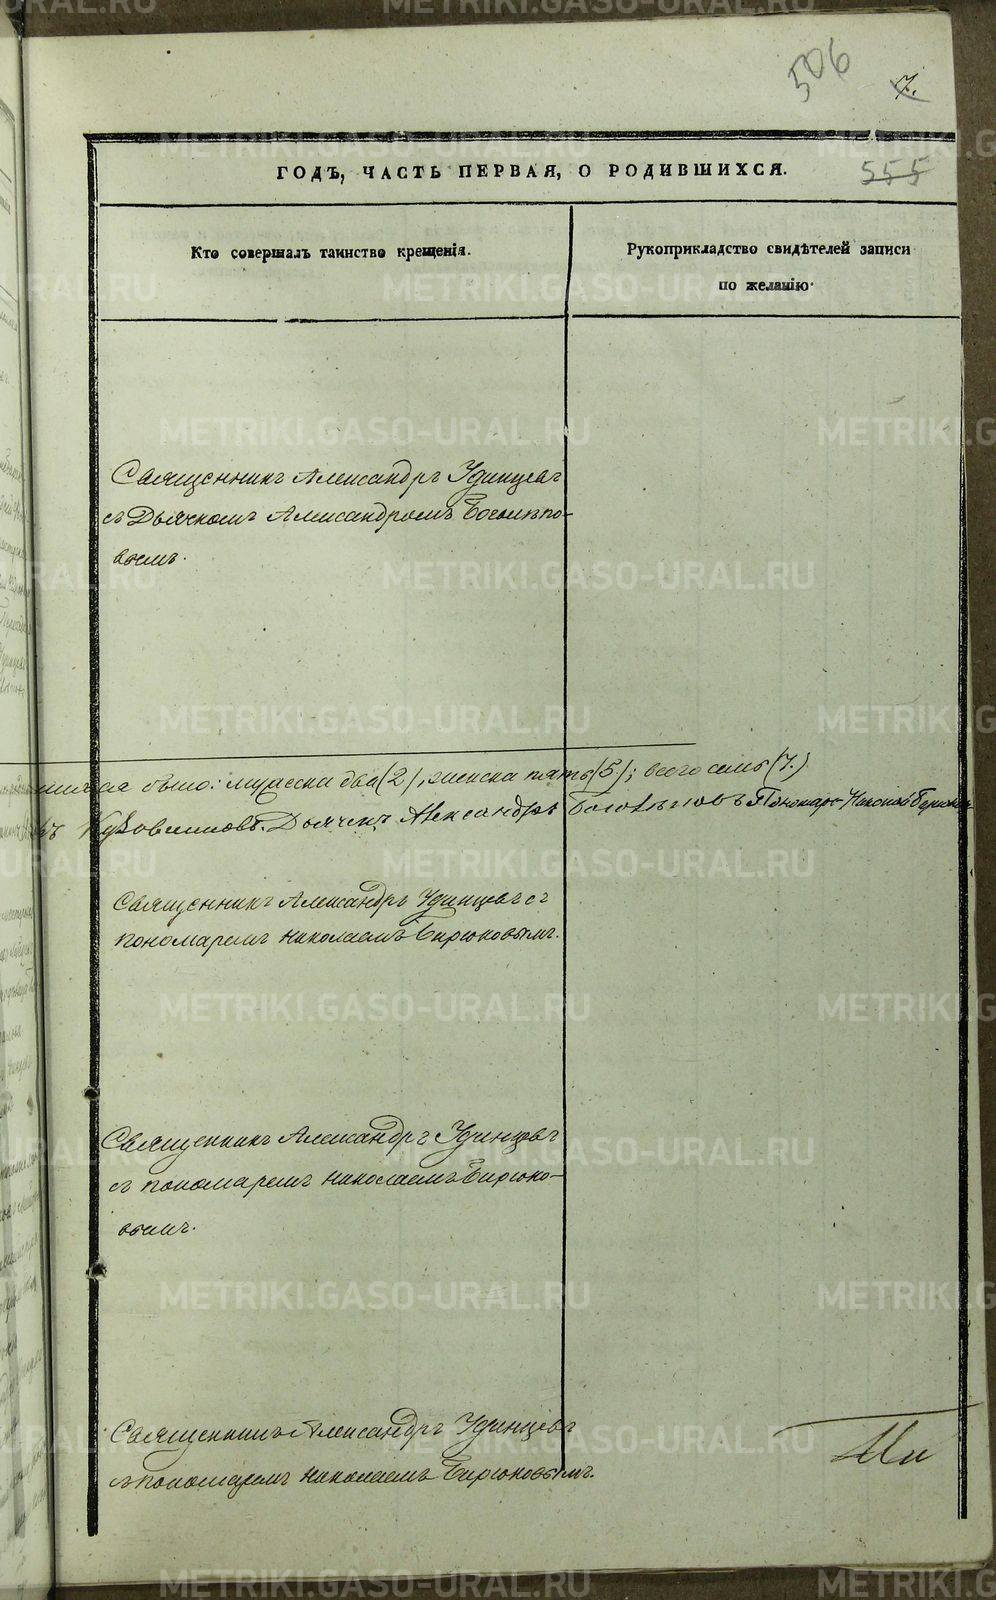 506
7.
ГОДЪ, ЧАСТЬ ПЕРВАЯ, О РОДИВШИХСЯ.
555
Кто совершалъ таинство крещенія.
Рукоприкладство свидѣтелей записи
по желанію.
Священникъ Александръ Удинцевъ
съ Дьячкомъ Александромъ Боголѣпо-
вымъ.
было: мужеска два (2), женска пять (5); всего семь (7.)
Дьячекъ Александръ Боголѣповъ Пономарь Николай
Священникъ Александръ Удинцевъ съ
пономаремъ Николаемъ Бирюковымъ.
Священникъ Александръ Удинцевъ
съ пономаремъ Николаемъ Бирюко-
вымъ.
Священникъ Александръ Удинцевъ
съ пономаремъ Николаемъ Бирюковымъ.
METRIKI.GASO-URAL.RU